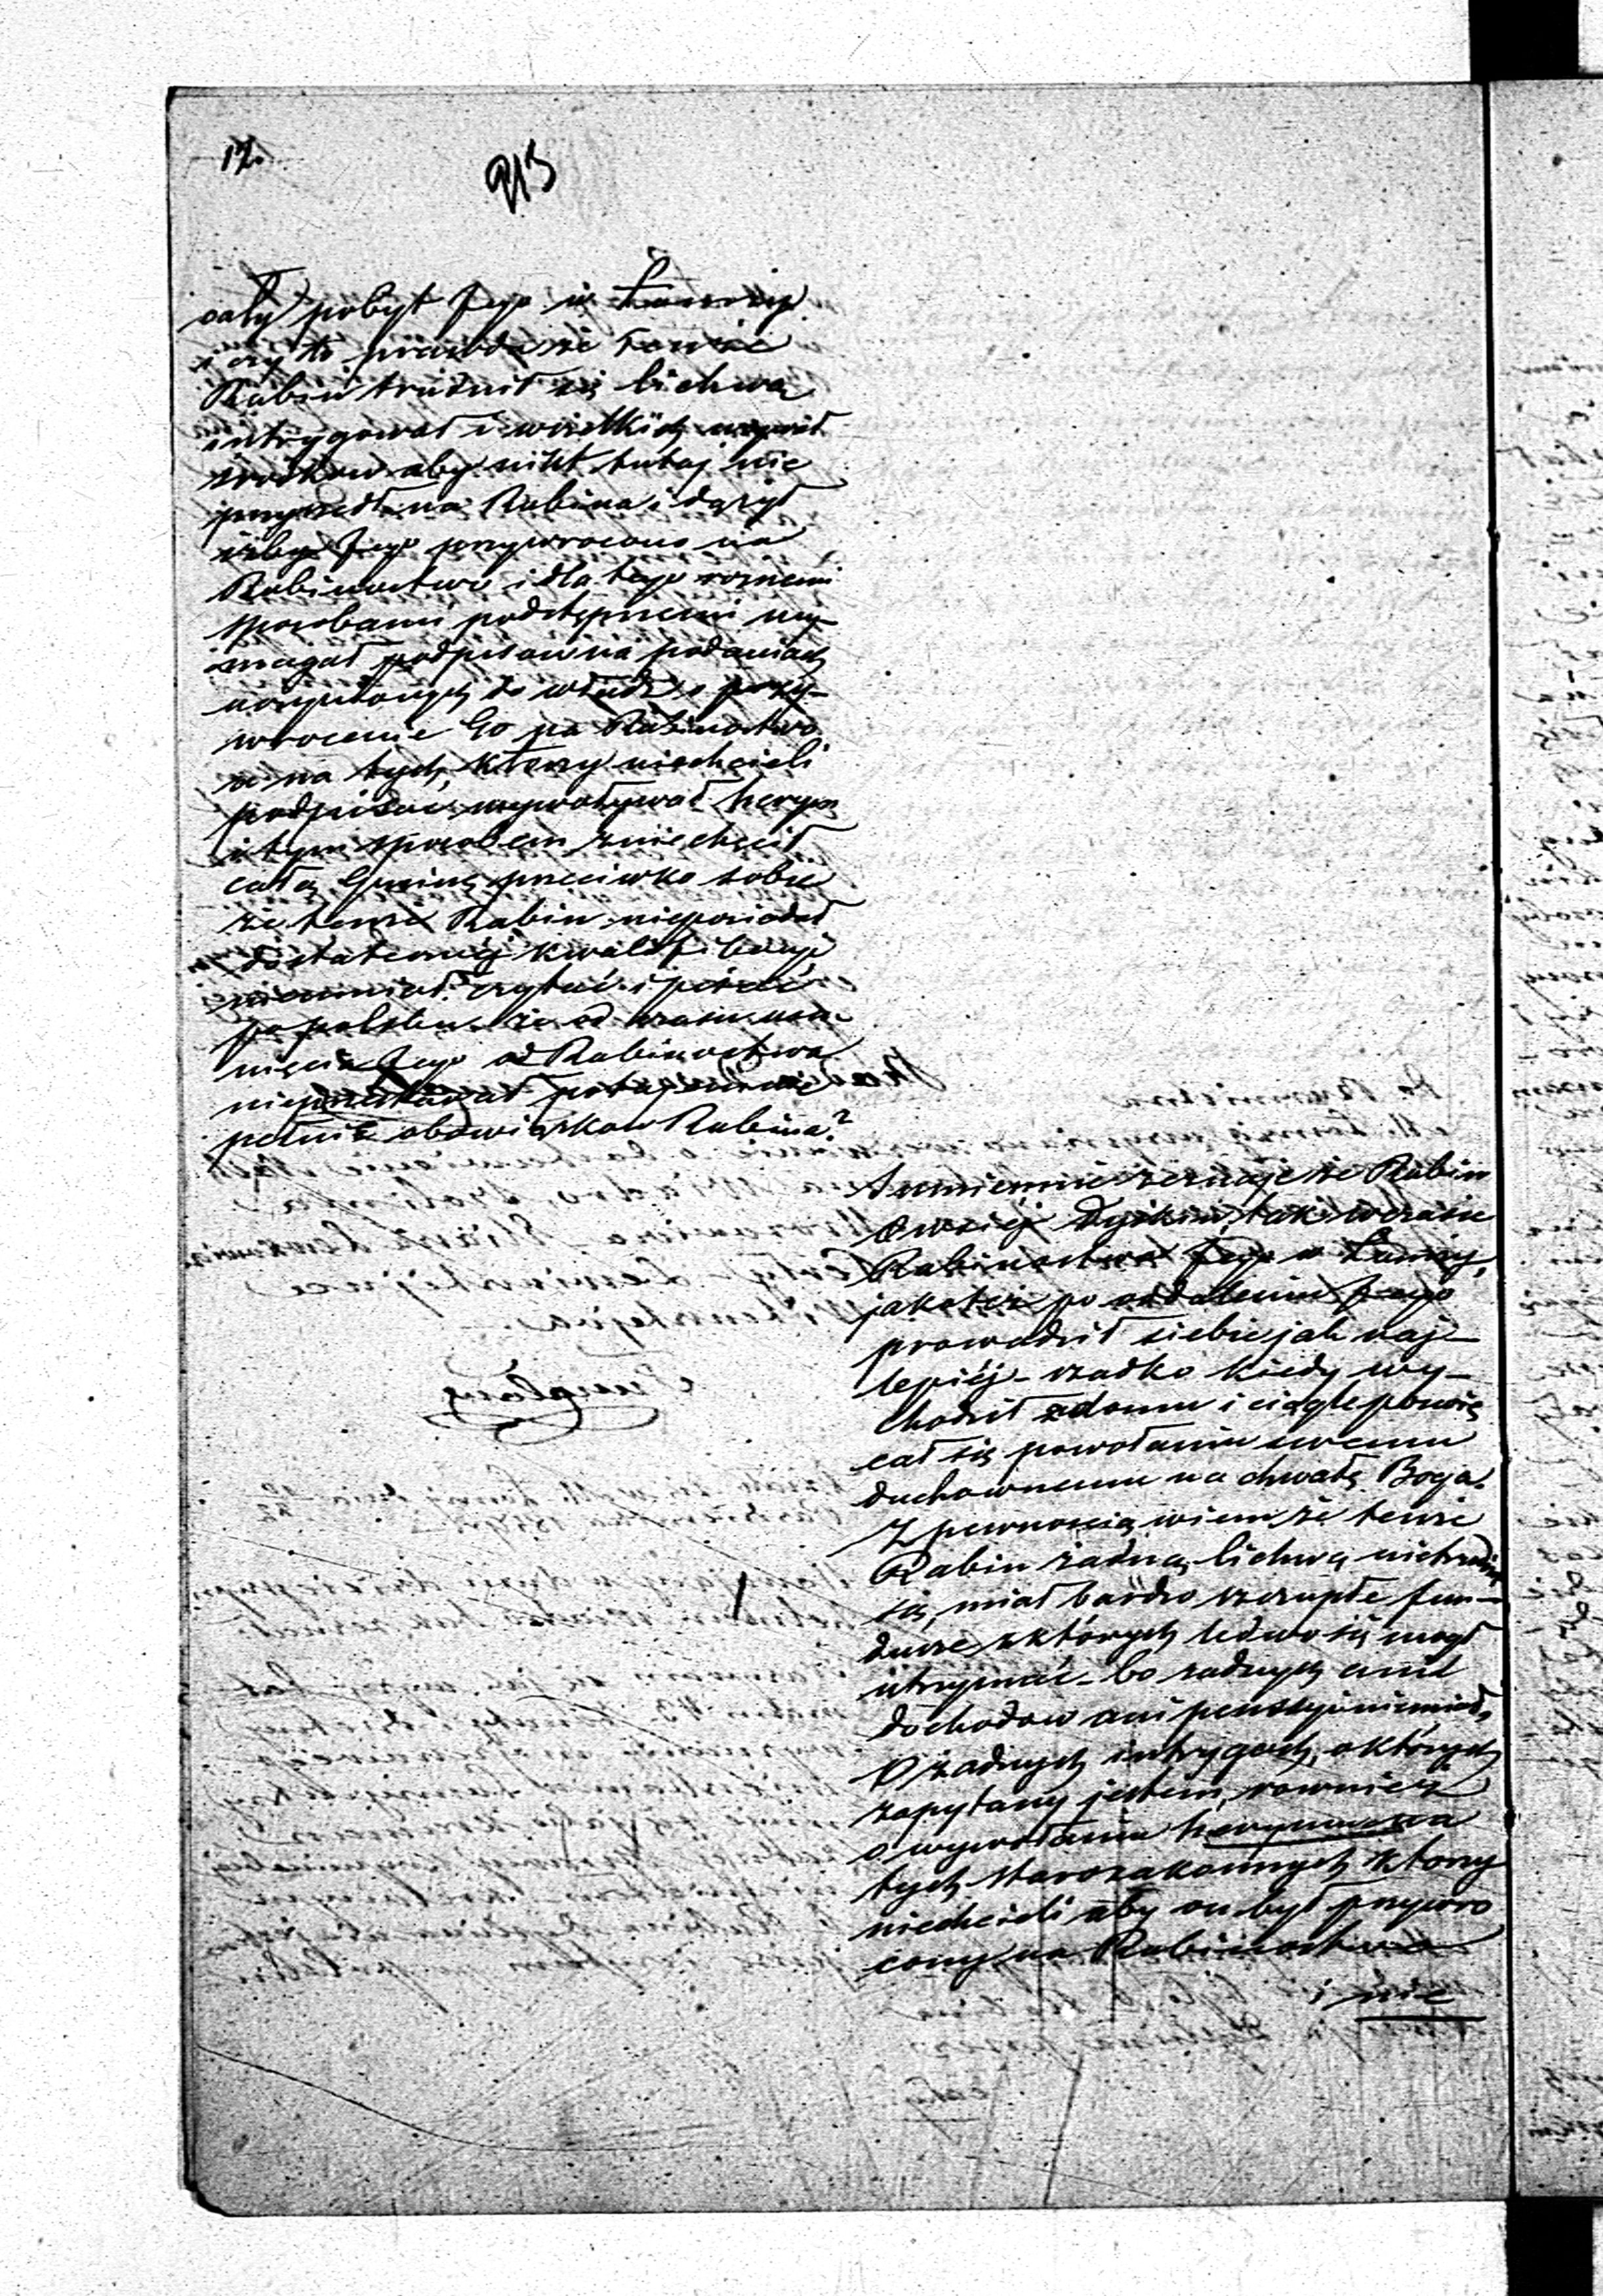 12.
213
cały pobyt Jego w Łomży
i czy to prawda że tenże
Rabin trudnił się lichwą
intrygował i wszelkich używał
srodkow aby nikt tutaj nie
przyszedł na Rabina i dązył
izby Jego przywrocono na
Rabinostwo i dla tego roznemi
sposobami podstępnemi wy-
magał podpisow na podaniach
do władz o przy-
wrocenie Go na Rabinostwo
a na tych, ktorzy niechcieli
podpisac wywoływał herym
i tym sposobem zniechęcił
całą Gminę przeciwko sobie
że tenże Rabin nieposiadał
dostatecznéj kwalifikacyi
nieumiał czytać i pisać
po polsku że od czasu usu-
nięcia Jego od Rabinostwa
nieprzestawał potajemnie
pełnić obowiązkow Rabina?
Sumiennie zeznaję że Rabin
Owsiej Dyskin, tak w czasie
Rabinostwa Jego w Łomży,
jakoteż po oddaleniu Jego
prowadził siebie jak naj-
lepiéj - rzadko kiedy wy-
chodził z domu i ciągle poswię
cał się powołaniu swemu
duchownemu na chwałę Boga.
Z pewnoscią wiem że tenże
Rabin żadną lichwą nietrudnił
się, miał bardzo szczupłe fun-
dusze z których ledwo się mogł
utrzymać - bo żadnych
dochodow ani pensyi niemiał,
O żadnych intrygach, o których
zapytany jestem, rownież
o wywołaniu herymu na
tych starozakonnych ktorzy
niechcieli aby on był przywro
cony na Rabinostwo
i nie